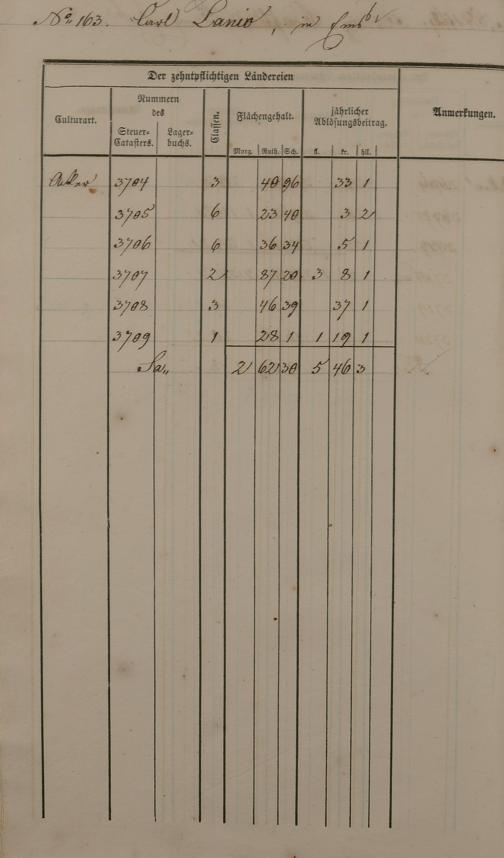 No 163. Carl Lanio, in Ems
Der zehntpflichtigen Ländereien
Culturart.
Nummern des
Steuer-Catasters.
Lager-buchs.
Classen.
Flächengehalt.
jährlicher Ablösungsbeitrag.
Anmerkungen.
Morg. Ruth. Sch. fl. kr. hll.
Acker 3704 3 40 96 33 1
3705 6 23 40 3 2
3706 6 36 34 5 1
3707 2 87 20 3 8 1
3708 3 46 39 37 1
3709 1 28 1 1 19 1
Sa. 2 62 30 5 46 3